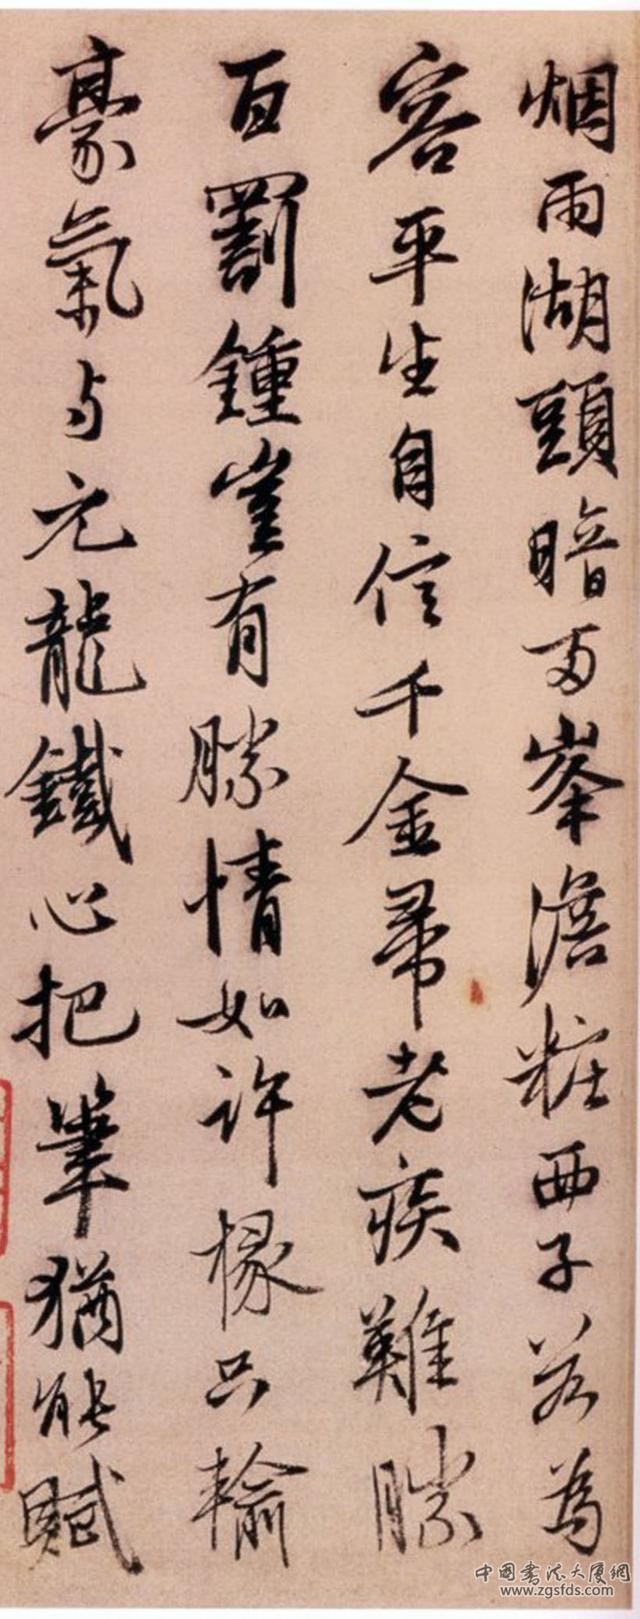 烟雨湖頭暗两峯澹粧西子若為
容平生自信千金帚老疾難勝
百罰鍾豈有勝情如許椽只輸
豪氣与元龍鐵心把筆猶能賦
中国书法大厦網
www.zgsfds.com